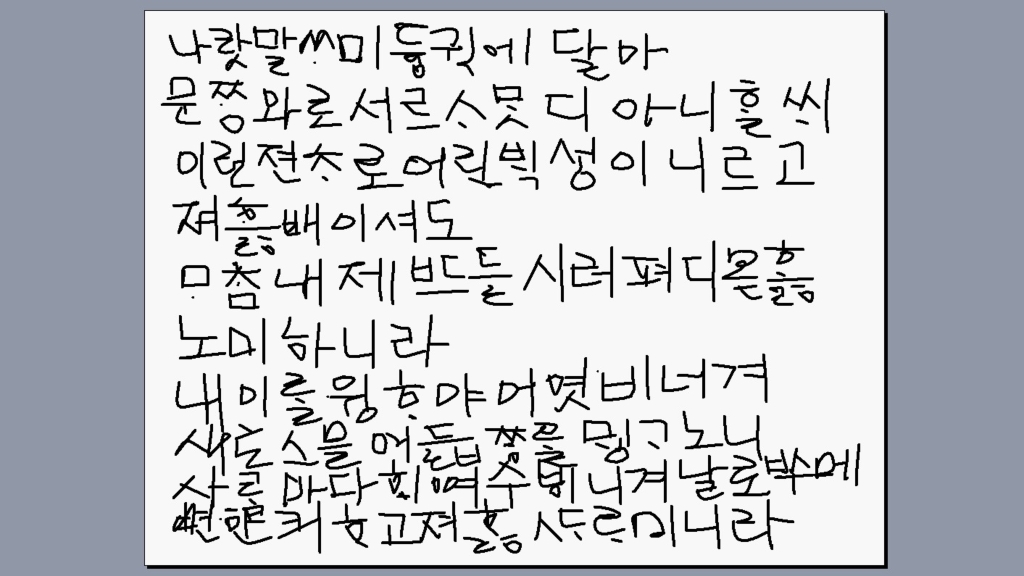 나랏말ᄊᆞ미 듕귁에 달아
문ᄍᆞᆼ와로 서르 ᄉᆞᄆᆞᆺ디 아니ᄒᆞᆯᄊᆡ
이런 젼ᄎᆞ로 어린 ᄇᆡᆨ셩이 니르고
져 ᄒᆞᇙ배이셔도
ᄆᆞᄎᆞᆷ내 제 ᄠᅳ들 시러펴디 몯ᄒᆞᇙ
노미 하니라
내 이ᄅᆞᆯ 윙ᄒᆞ야 어엿비 너겨
새로 스믈 여듧 ᄍᆞᆼᄅᆞᆯ ᄆᆡᇰᄀᆞ노니
사ᄅᆞᆷ마다 ᄒᆡᅇᅧ 수ᄫᅵ 니겨 날로 ᄡᅮ메
뼌한킈 ᄒᆞ고져 ᄒᆞᇙ ᄯᆞᄅᆞ미니라